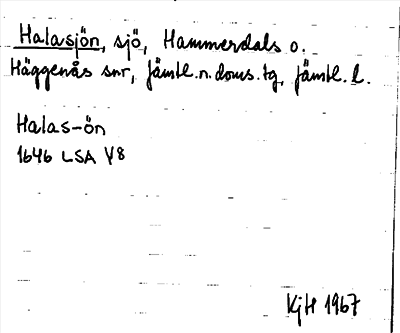 Halasjön, sjö, Hammerdals o.
Häggenås snr, Jämtl. n. doms. tg, Jämtl. l.
Halas-ön
1646 LSA V8
KjH 1967